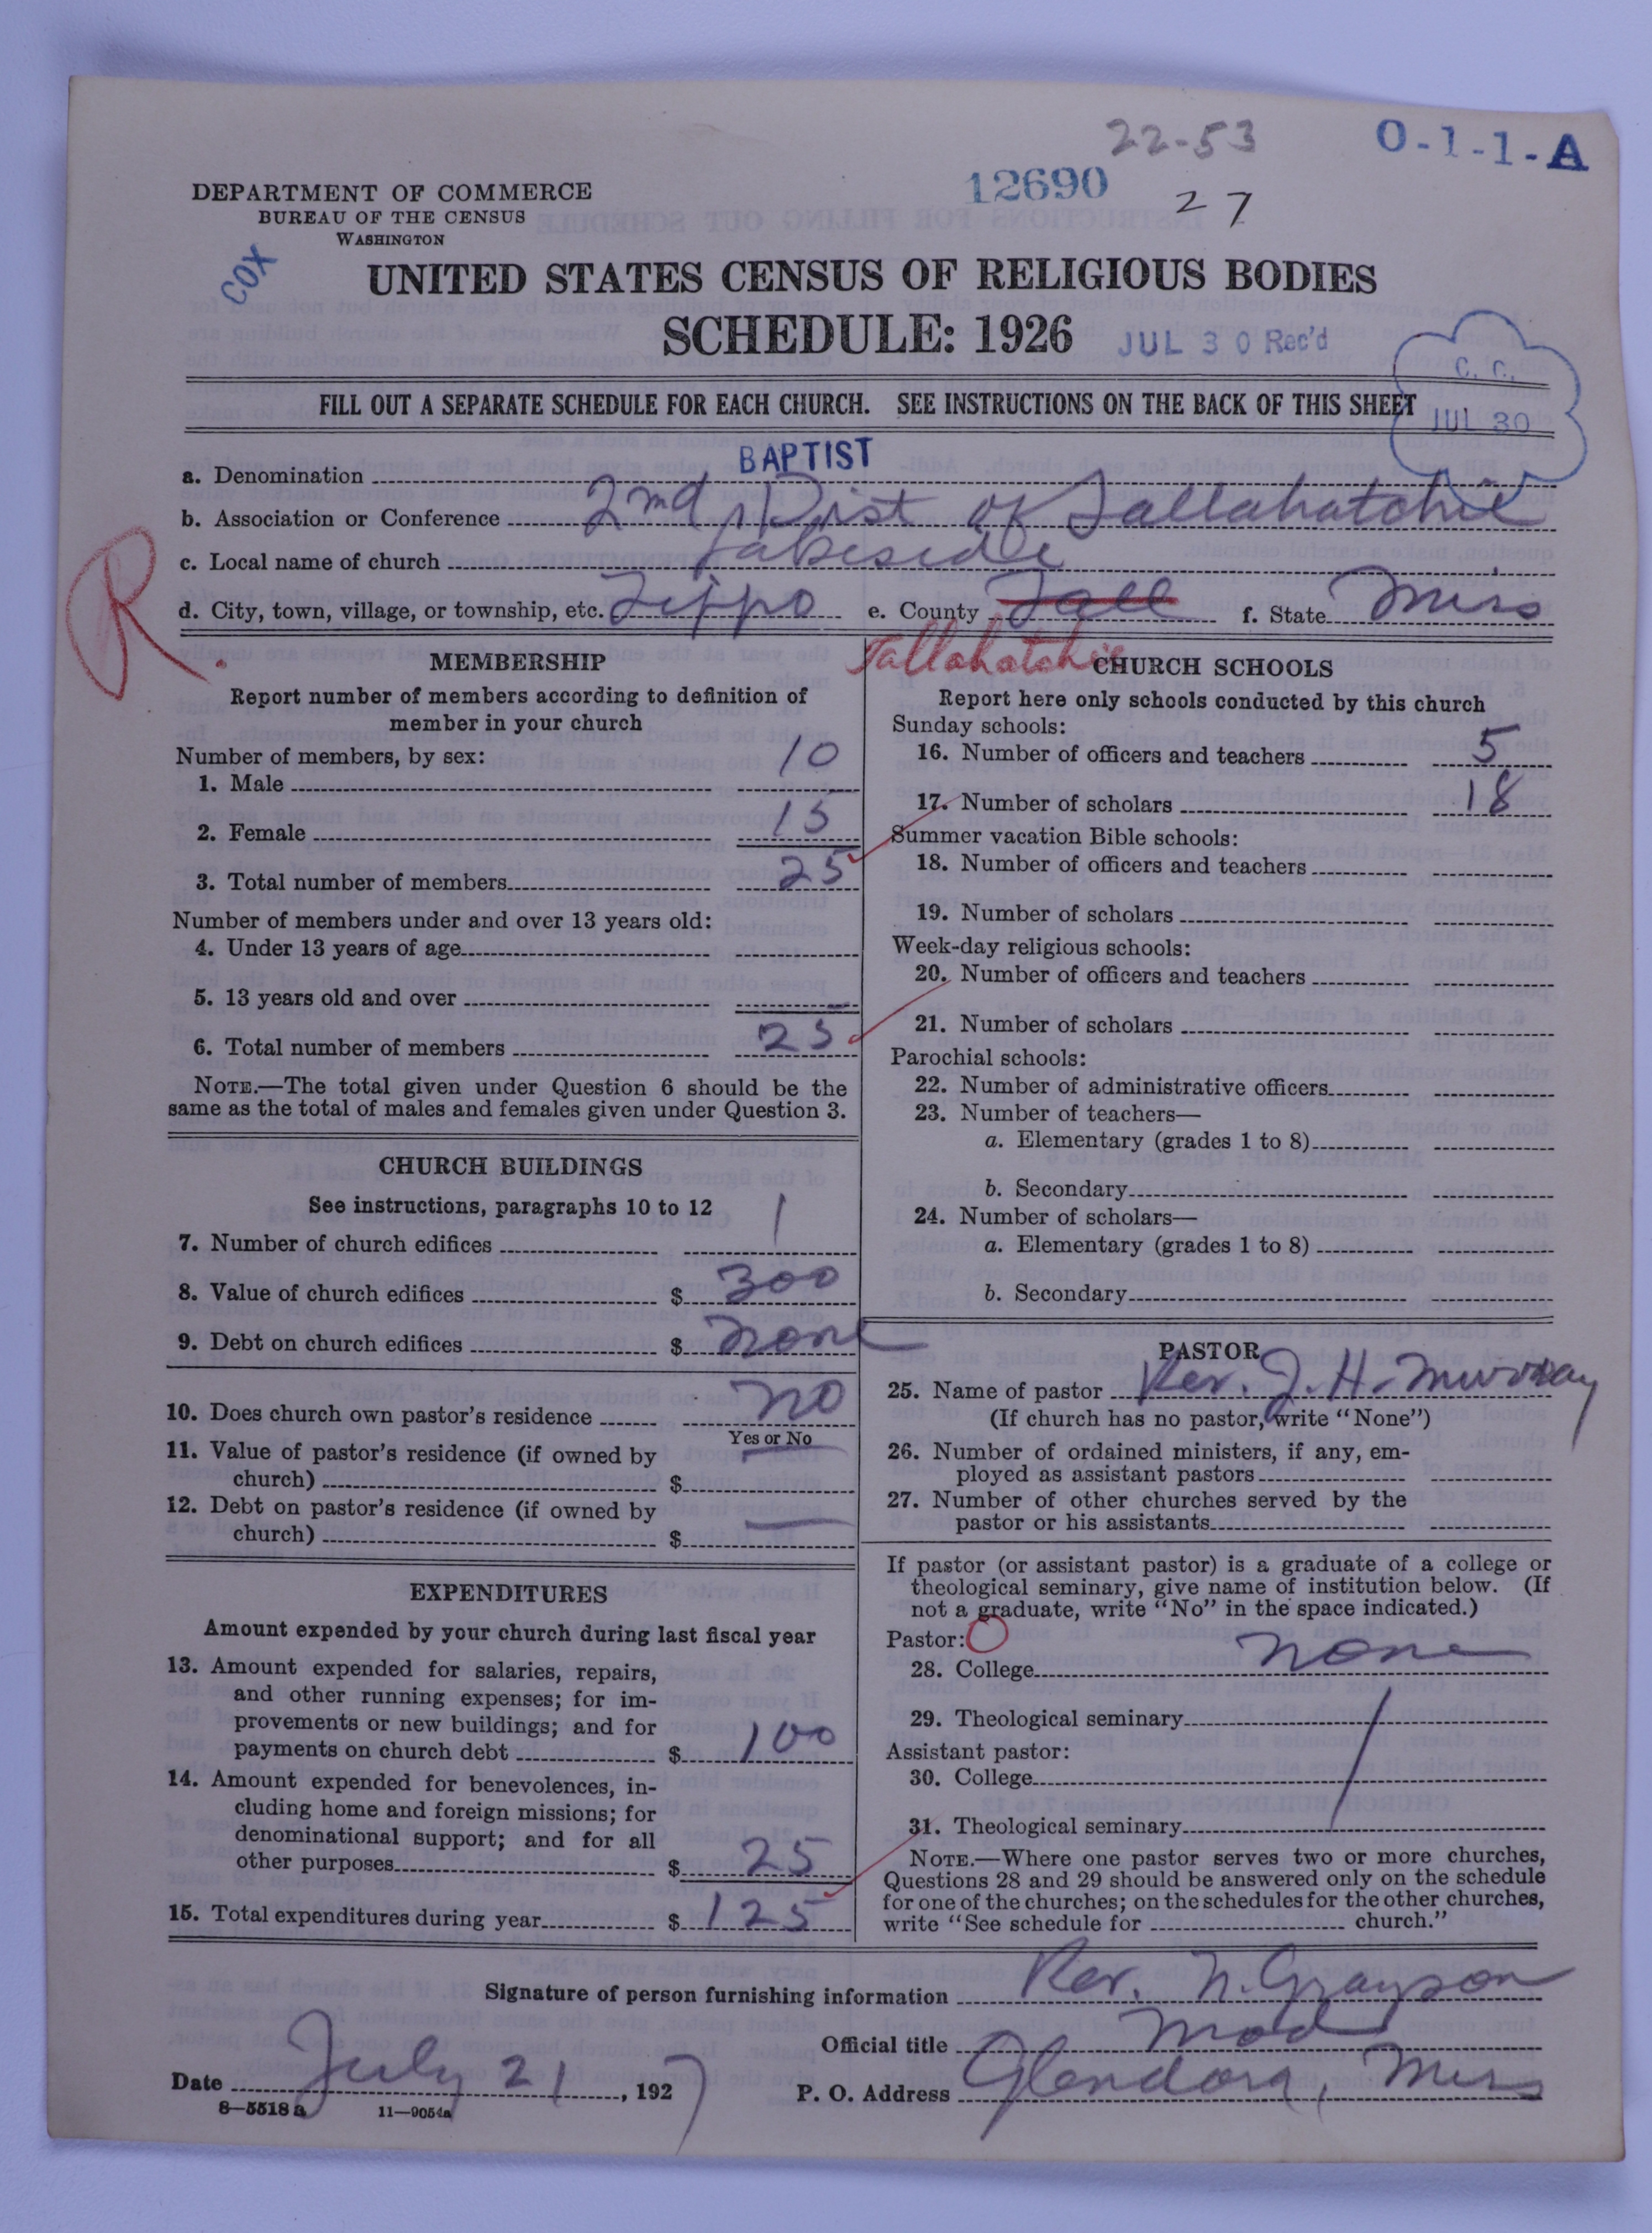 22-53
O-1-1-A
12690
27
DEPARTMENT OF COMMERCE
BUREAU OF THE CENSUS
WASHINGTON
COX
UNITED STATES CENSUS OF RELIGIOUS BODIES
SCHEDULE: 1926
JUL 30 Rec'd
C. C.
JUL 30
FILL OUT A SEPARATE SCHEDULE FOR EACH CHURCH. SEE INSTRUCTIONS ON THE BACK OF THIS SHEET
a. Denomination BAPTIST
b. Association or Conference 2nd Dist of Tallahatchie
c. Local name of church Lakeside
R.
d. City, town, village, or township, etc. Tippo e. County Tall f. State Miss
Tallahatchie
MEMBERSHIP
Report number of members according to definition of
member in your church
Number of members, by sex:
1. Male 10
2. Female 15
3. Total number of members 25
Number of members under and over 13 years old:
4. Under 13 years of age
5. 13 years old and over
6. Total number of members 25
NOTE.—The total given under Question 6 should be the
same as the total of males and females given under Question 3.
CHURCH BUILDINGS
See instructions, paragraphs 10 to 12
7. Number of church edifices 1
8. Value of church edifices $ 300
9. Debt on church edifices $ none
10. Does church own pastor's residence no
Yes or No
11. Value of pastor's residence (if owned by
church) $ —
12. Debt on pastor's residence (if owned by
church) $ —
EXPENDITURES
Amount expended by your church during last fiscal year
13. Amount expended for salaries, repairs,
and other running expenses; for im-
provements or new buildings; and for
payments on church debt $ 100
14. Amount expended for benevolences, in-
cluding home and foreign missions; for
denominational support; and for all
other purposes $ 25
15. Total expenditures during year $ 125
CHURCH SCHOOLS
Report here only schools conducted by this church
Sunday schools:
16. Number of officers and teachers 5
17. Number of scholars 18
Summer vacation Bible schools:
18. Number of officers and teachers
19. Number of scholars
Week-day religious schools:
20. Number of officers and teachers
21. Number of scholars
Parochial schools:
22. Number of administrative officers
23. Number of teachers—
a. Elementary (grades 1 to 8)
b. Secondary
24. Number of scholars—
a. Elementary (grades 1 to 8)
b. Secondary
PASTOR
25. Name of pastor Rev. J. H. Murray
(If church has no pastor, write "None")
26. Number of ordained ministers, if any, em-
ployed as assistant pastors
27. Number of other churches served by the
pastor or his assistants
If pastor (or assistant pastor) is a graduate of a college or
theological seminary, give name of institution below. (If
not a graduate, write "No" in the space indicated.)
Pastor: O
28. College none
29. Theological seminary
Assistant pastor:
30. College
31. Theological seminary
NOTE.—Where one pastor serves two or more churches,
Questions 28 and 29 should be answered only on the schedule
for one of the churches; on the schedules for the other churches,
write "See schedule for church."
Signature of person furnishing information Rev. N. Grayson
Official title Mod
Date July 21, 1927 P. O. Address Glendora, Miss
8—5518 a 11—9054a